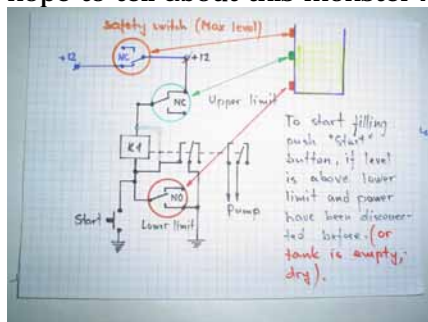 hope to tell about this monster
safety switch (Max level)
+12
NC
+12
NC
Upper limit
K1
NO
Pump
Start
Lower limit
To start filling
push "Start"
button, if level
is above lower
limit and power
have been disconec-
ted before. (or
tank is empty,
dry).